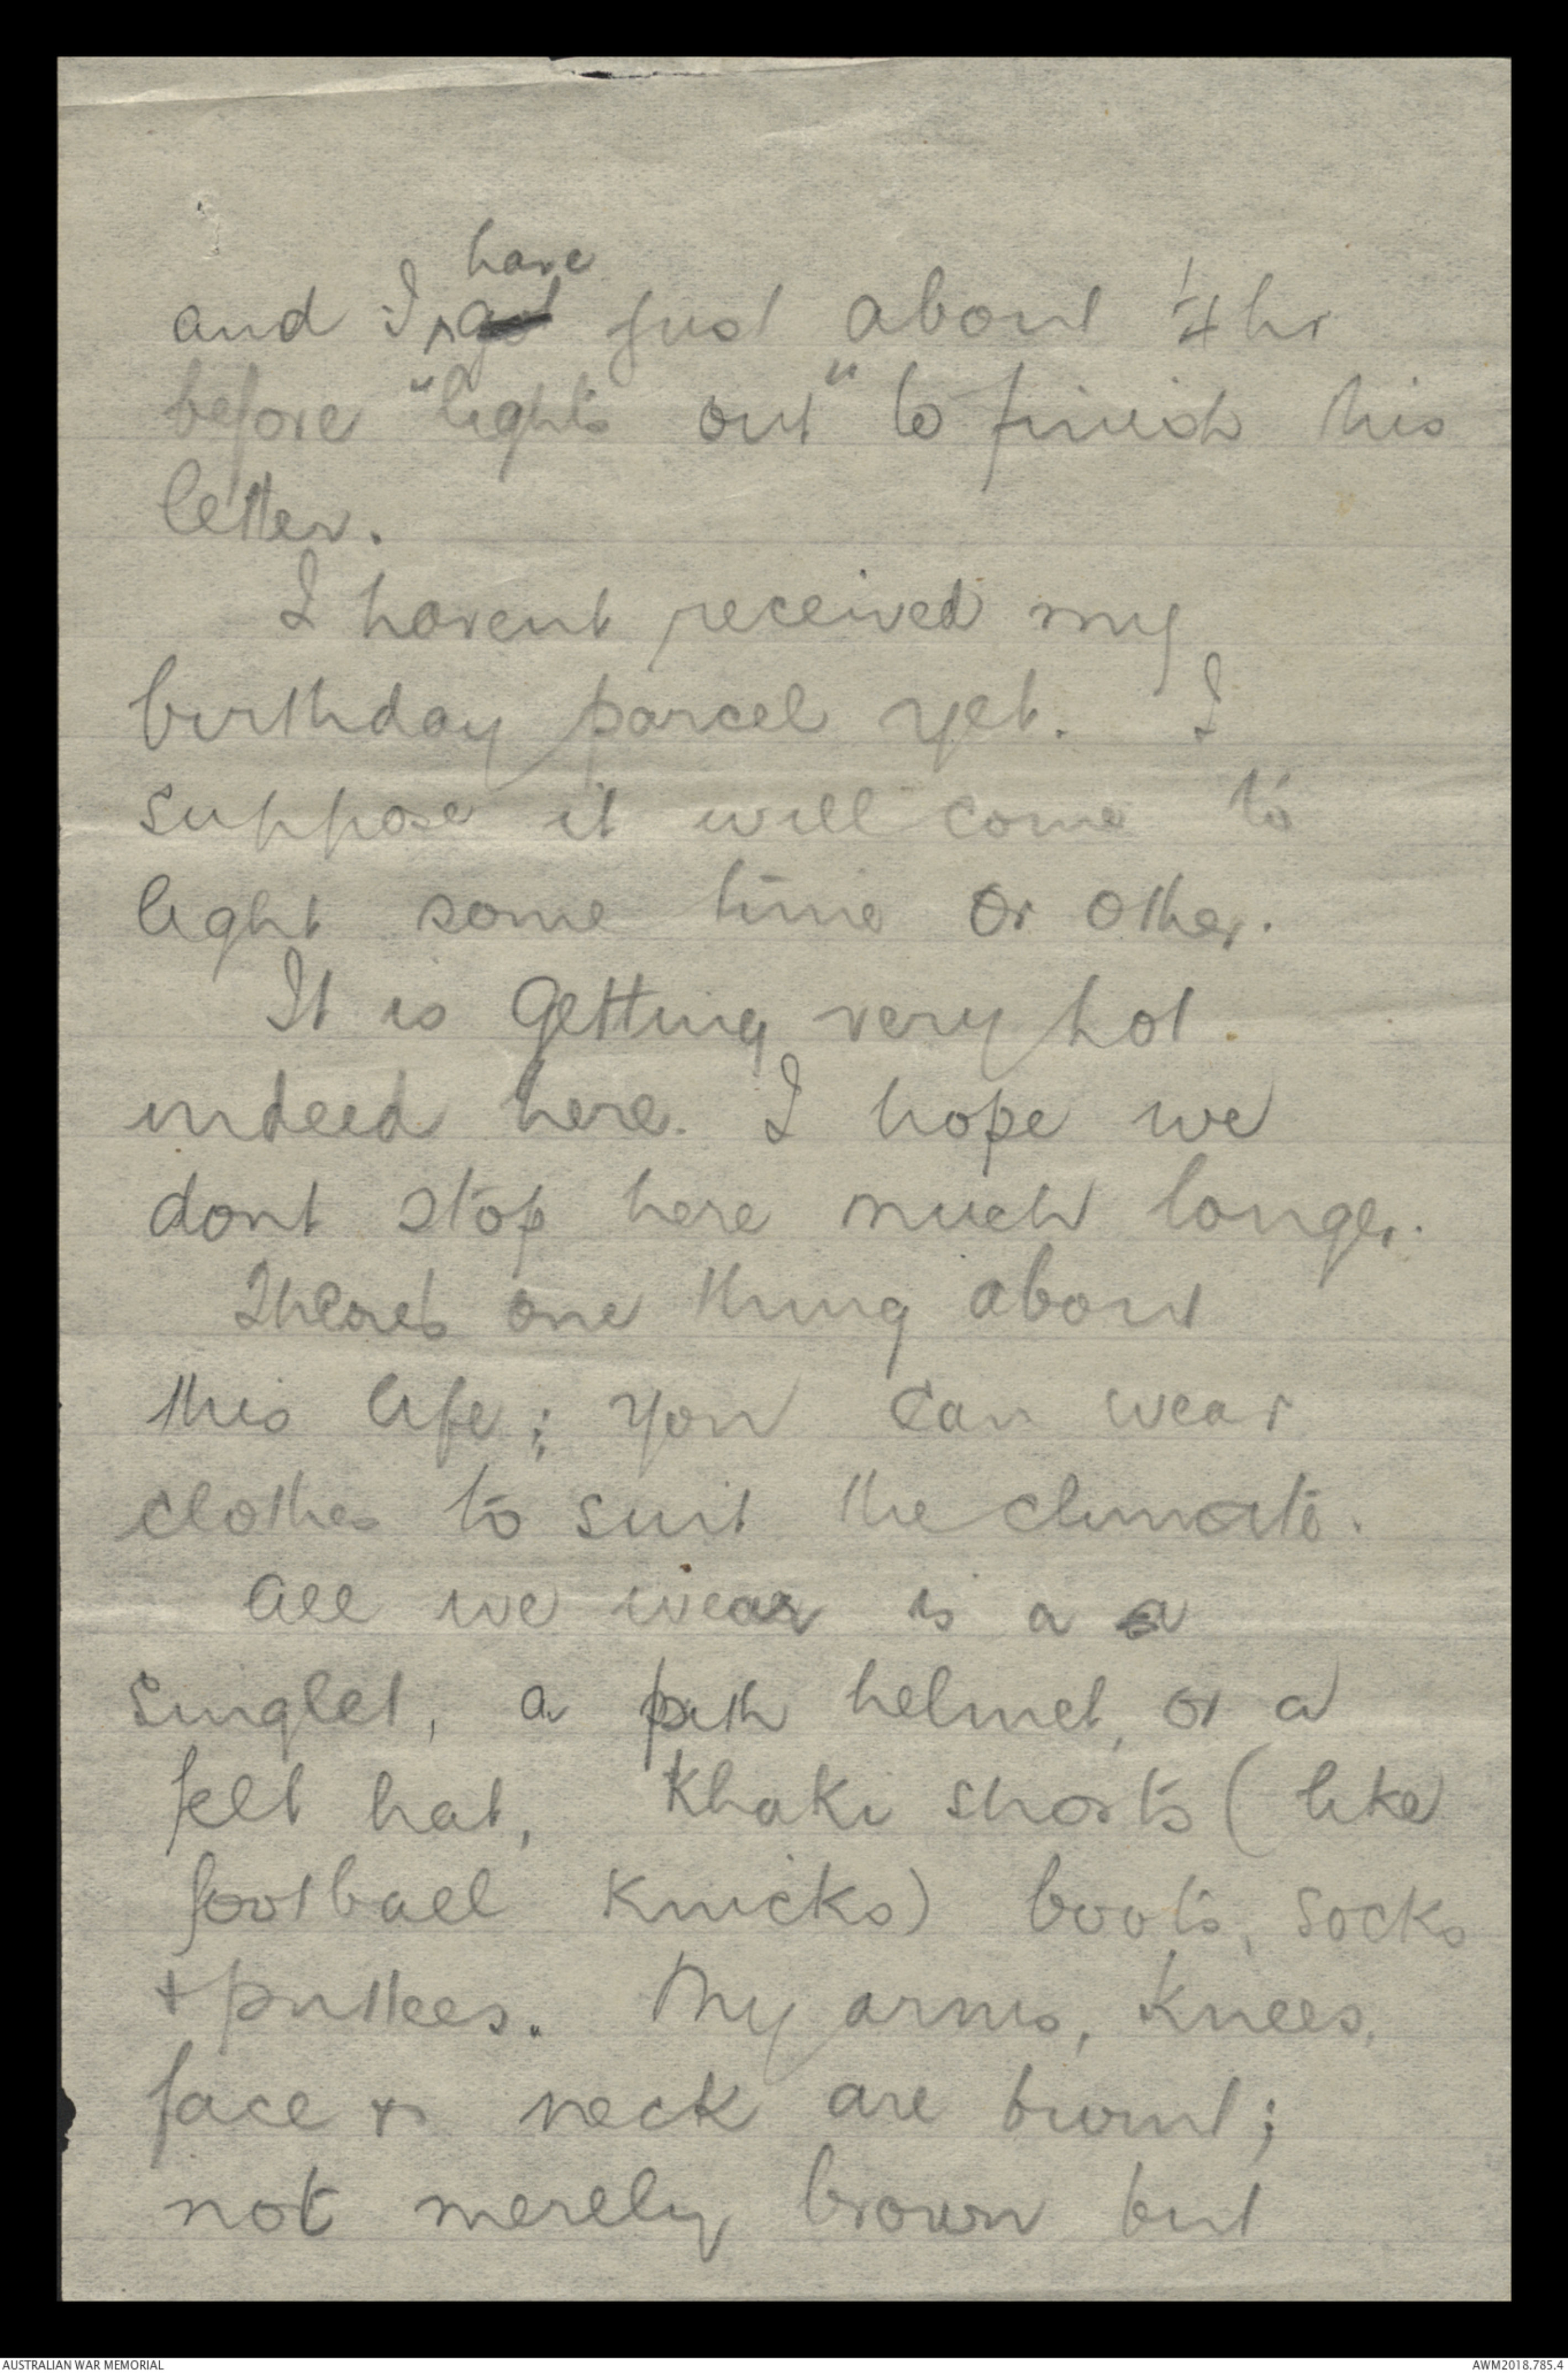 have
and I ^ got just about ¼ hr
before "lights out" to finish this
letter.
I havent received my
birthday parcel yet. I
suppose it will come to
light some time or other.
It is getting very hot
indeed here. I hope we
dont stop here much longer.
Theres one thing about
this life; you can wear
clothes to suit the climate.
All we wear is a a
singlet, a pith helmet, or a
felt hat, Khaki shorts (like
football knicks) boots, socks
+ puttees. My arms, knees,
face + neck are burnt;
not merely brown but
AUSTRALIAN WAR MEMORIAL
AWM2018.785.4